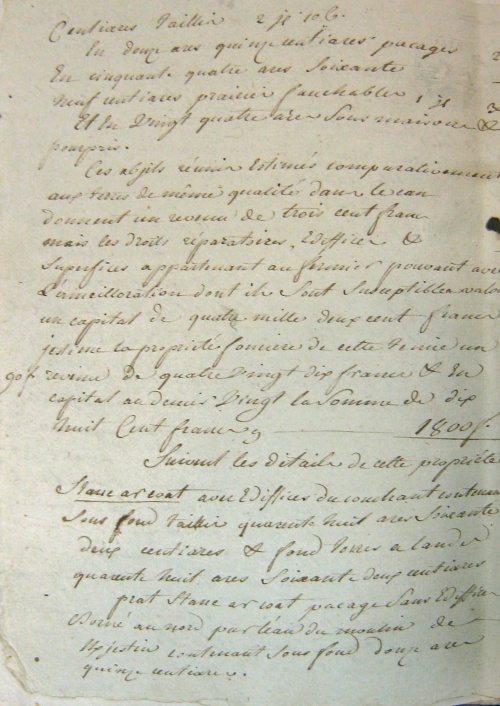 Centiares taillis 2 je 10 6.
En douze ares quinze centiares pacages
En cinquante quatre ares soixante
neuf centiares prairies fauchables 1 31
Et En Vingt quatre ares sous maisons &
pourpris.
Ces objets réunis Estimés comparativement
aux terres de même qualité dans le can
donnent un revenu de trois cent franc
mais les droits réparatoires, Ediffices &
superfices appartenant au fermier pouvant avec
L'amelloration dont ils sont susceptibles valoir
un capital de quatre mille deux cent francs
jestime la propriété foncière de cette tenue un
90 f revenu de quatre Vingt dix francs & En
capital au denier Vingt la somme de dix
huit Cent francs 1800 f.
Suivent les détails de cette propriété
Stanc ar coat avec Ediffices du couchant contenant
sous fond taillis quarente huit ares soixante
deux centiares & fond terres a landes
quarente huit ares soixante deux centiares
prat Stanc ar coat pacage sans Ediffices
Borné au nord par l'eau du moulin de
contenant sous fond douze ares
quinze centiares.